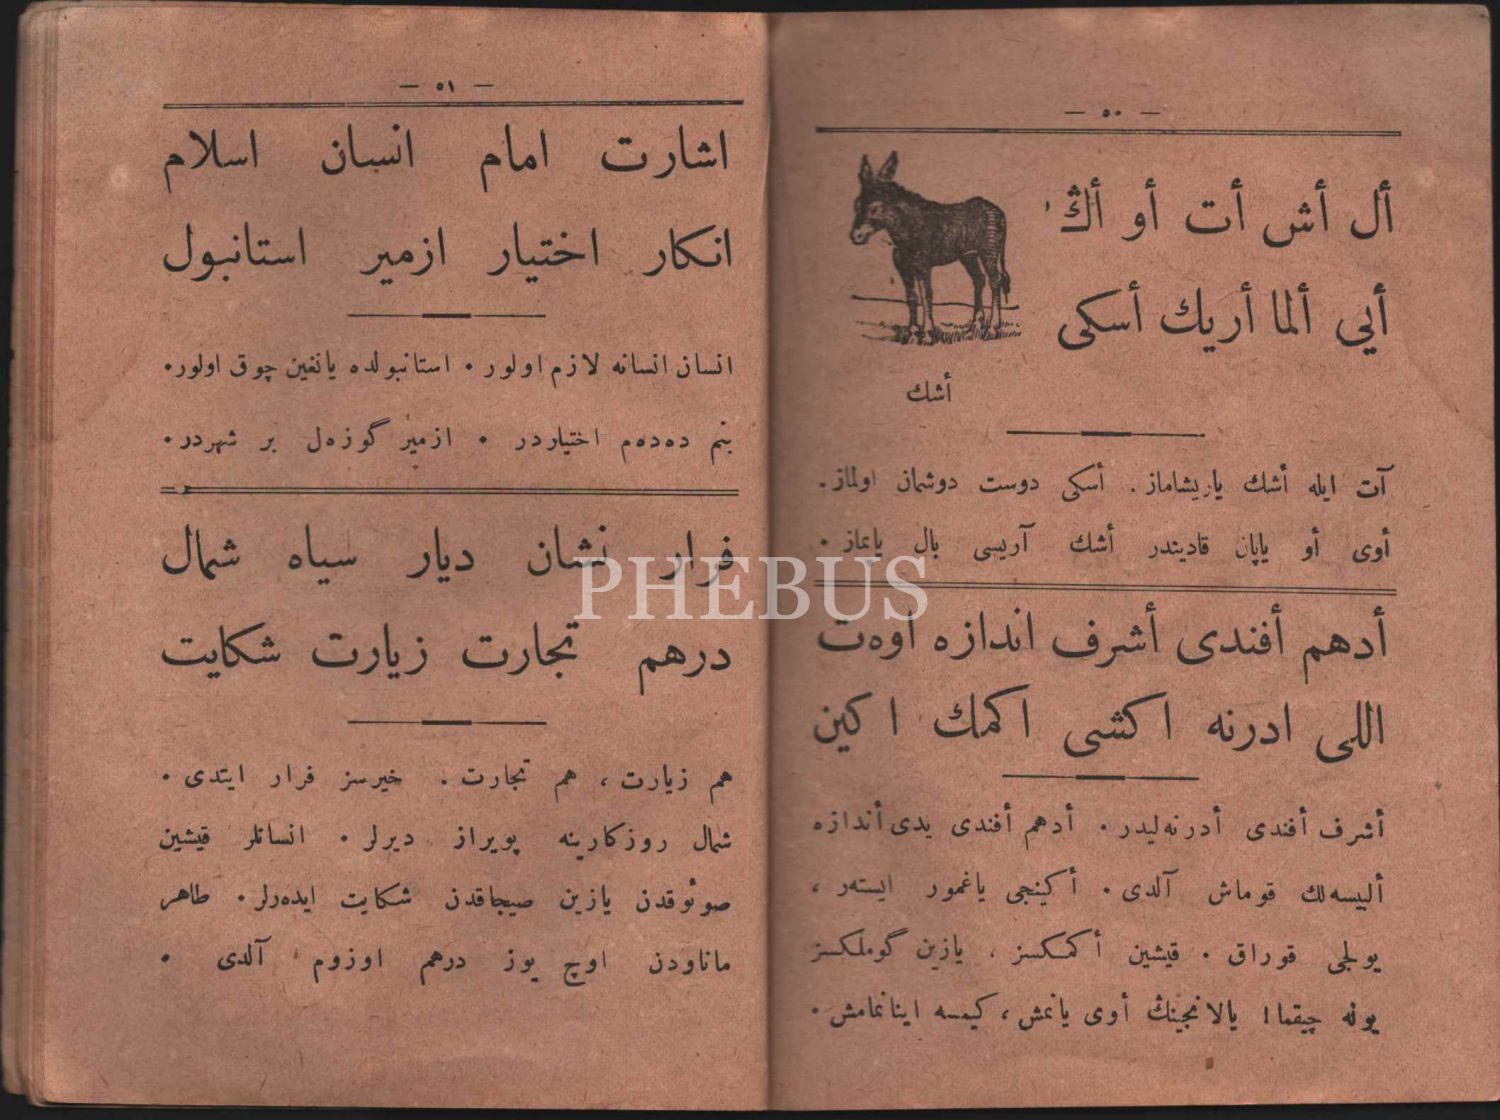 — ٥٠ —
أل أش أت أو أڭ
أيي ألما أريك أسكى
أشك
آت ايله أشك ياريشاماز. أسكى دوست دوشمان اولماز.
أوى أو ياپان قاديندر أشك آريسى بال يابماز.
أدهم أفندى أشرف اندازه اوەت
اللى ادرنه اكشى اكمك اكين
أشرف أفندى أدرنەليدر. أدهم أفندى يدى أندازه
ألبيسەلك قوماش آلدى. أكينجى ياغمور ايستەر،
يولجى قوراق. قيشين أكمكسز، يازين گوملكسز
يوله چيقما! يالانجينڭ أوى يانمش، كيمسه اينانمامش.
— ٥١ —
اشارت امام انسان اسلام
انكار اختيار ازمير استانبول
انسان انسانه لازم اولور. استانبولده يانغين چوق اولور.
بنم دەدەم اختياردر. ازمير گوزەل بر شهردر.
فرار نشان ديار سياه شمال
درهم تجارت زيارت شكايت
هم زيارت، هم تجارت. خيرسز فرار ايتدى.
شمال روزكارينه پويراز ديرلر. انسانلر قيشين
صوئوقدن يازين صيجاقدن شكايت ايدەرلر. طاهر
ماناودن اوچ يوز درهم اوزوم آلدى.
PHEBUS